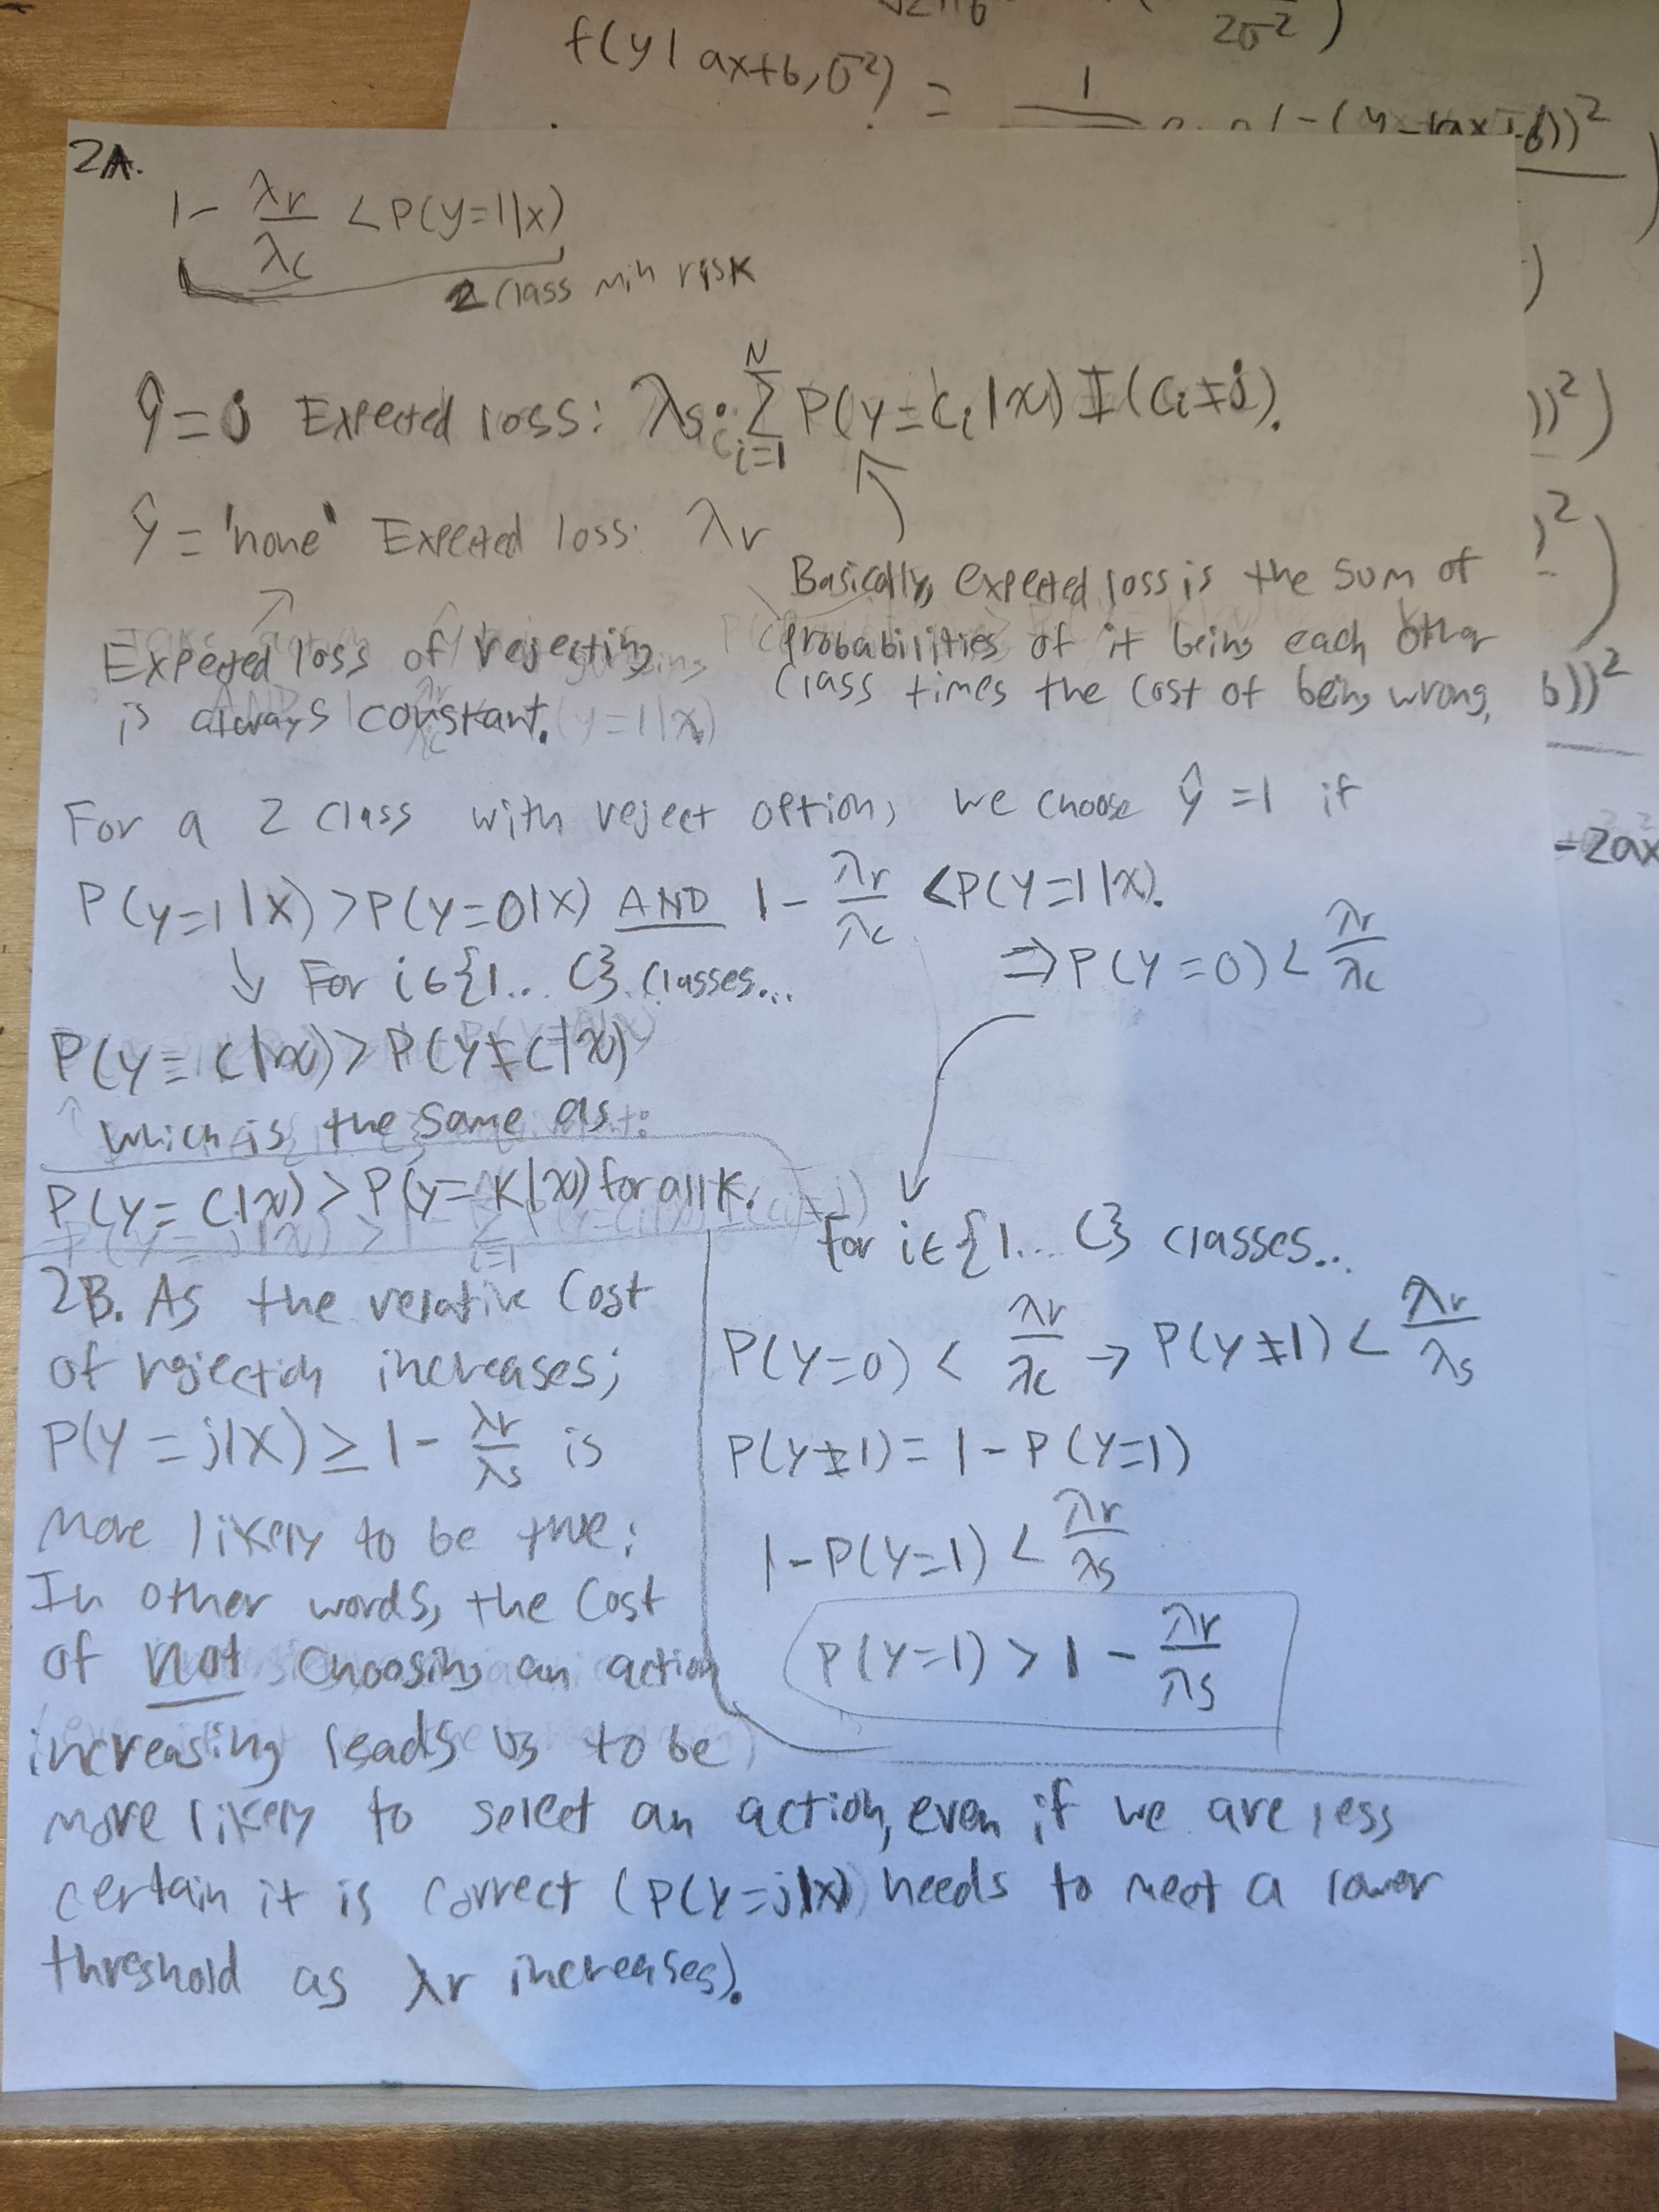 f(y|ax+b,σ²) = 1
2σ²)
-(y-(ax+b))²
2A.
1 - λr/λc < P(y=1|x)
2 class min risk
ŷ = j Expected loss: λs · Σ_{i=1}^{N} P(y=cᵢ|x) I(cᵢ≠j).
ŷ = 'none' Expected loss: λr
Basically, expected loss is the sum of
probabilities of it being each other
class times the cost of being wrong.
Expected loss of rejecting
is always constant.
For a 2 class with reject option, we choose ŷ=1 if
P(y=1|x) > P(y=0|x) AND 1 - λr/λc < P(y=1|x).
⇒ P(y=0) < λr/λc
↓ For i∈{1... C} classes...
P(y=c|x) > P(y≠c|x)
↑ which is the same as:
P(y=c|x) > P(y=k|x) for all k.
For i∈{1... C} classes...
P(y=0) < λr/λc → P(y≠1) < λr/λs
P(y≠1) = 1 - P(y=1)
1 - P(y=1) < λr/λs
P(y=1) > 1 - λr/λs
2B. As the relative cost
of rejection increases;
P(y=j|x) ≥ 1 - λr/λs is
more likely to be true;
In other words, the cost
of not choosing an action
increasing leads us to be
more likely to select an action, even if we are less
certain it is correct (P(y=j|x) needs to meet a lower
threshold as λr increases).
))²)
b))²
-2ax